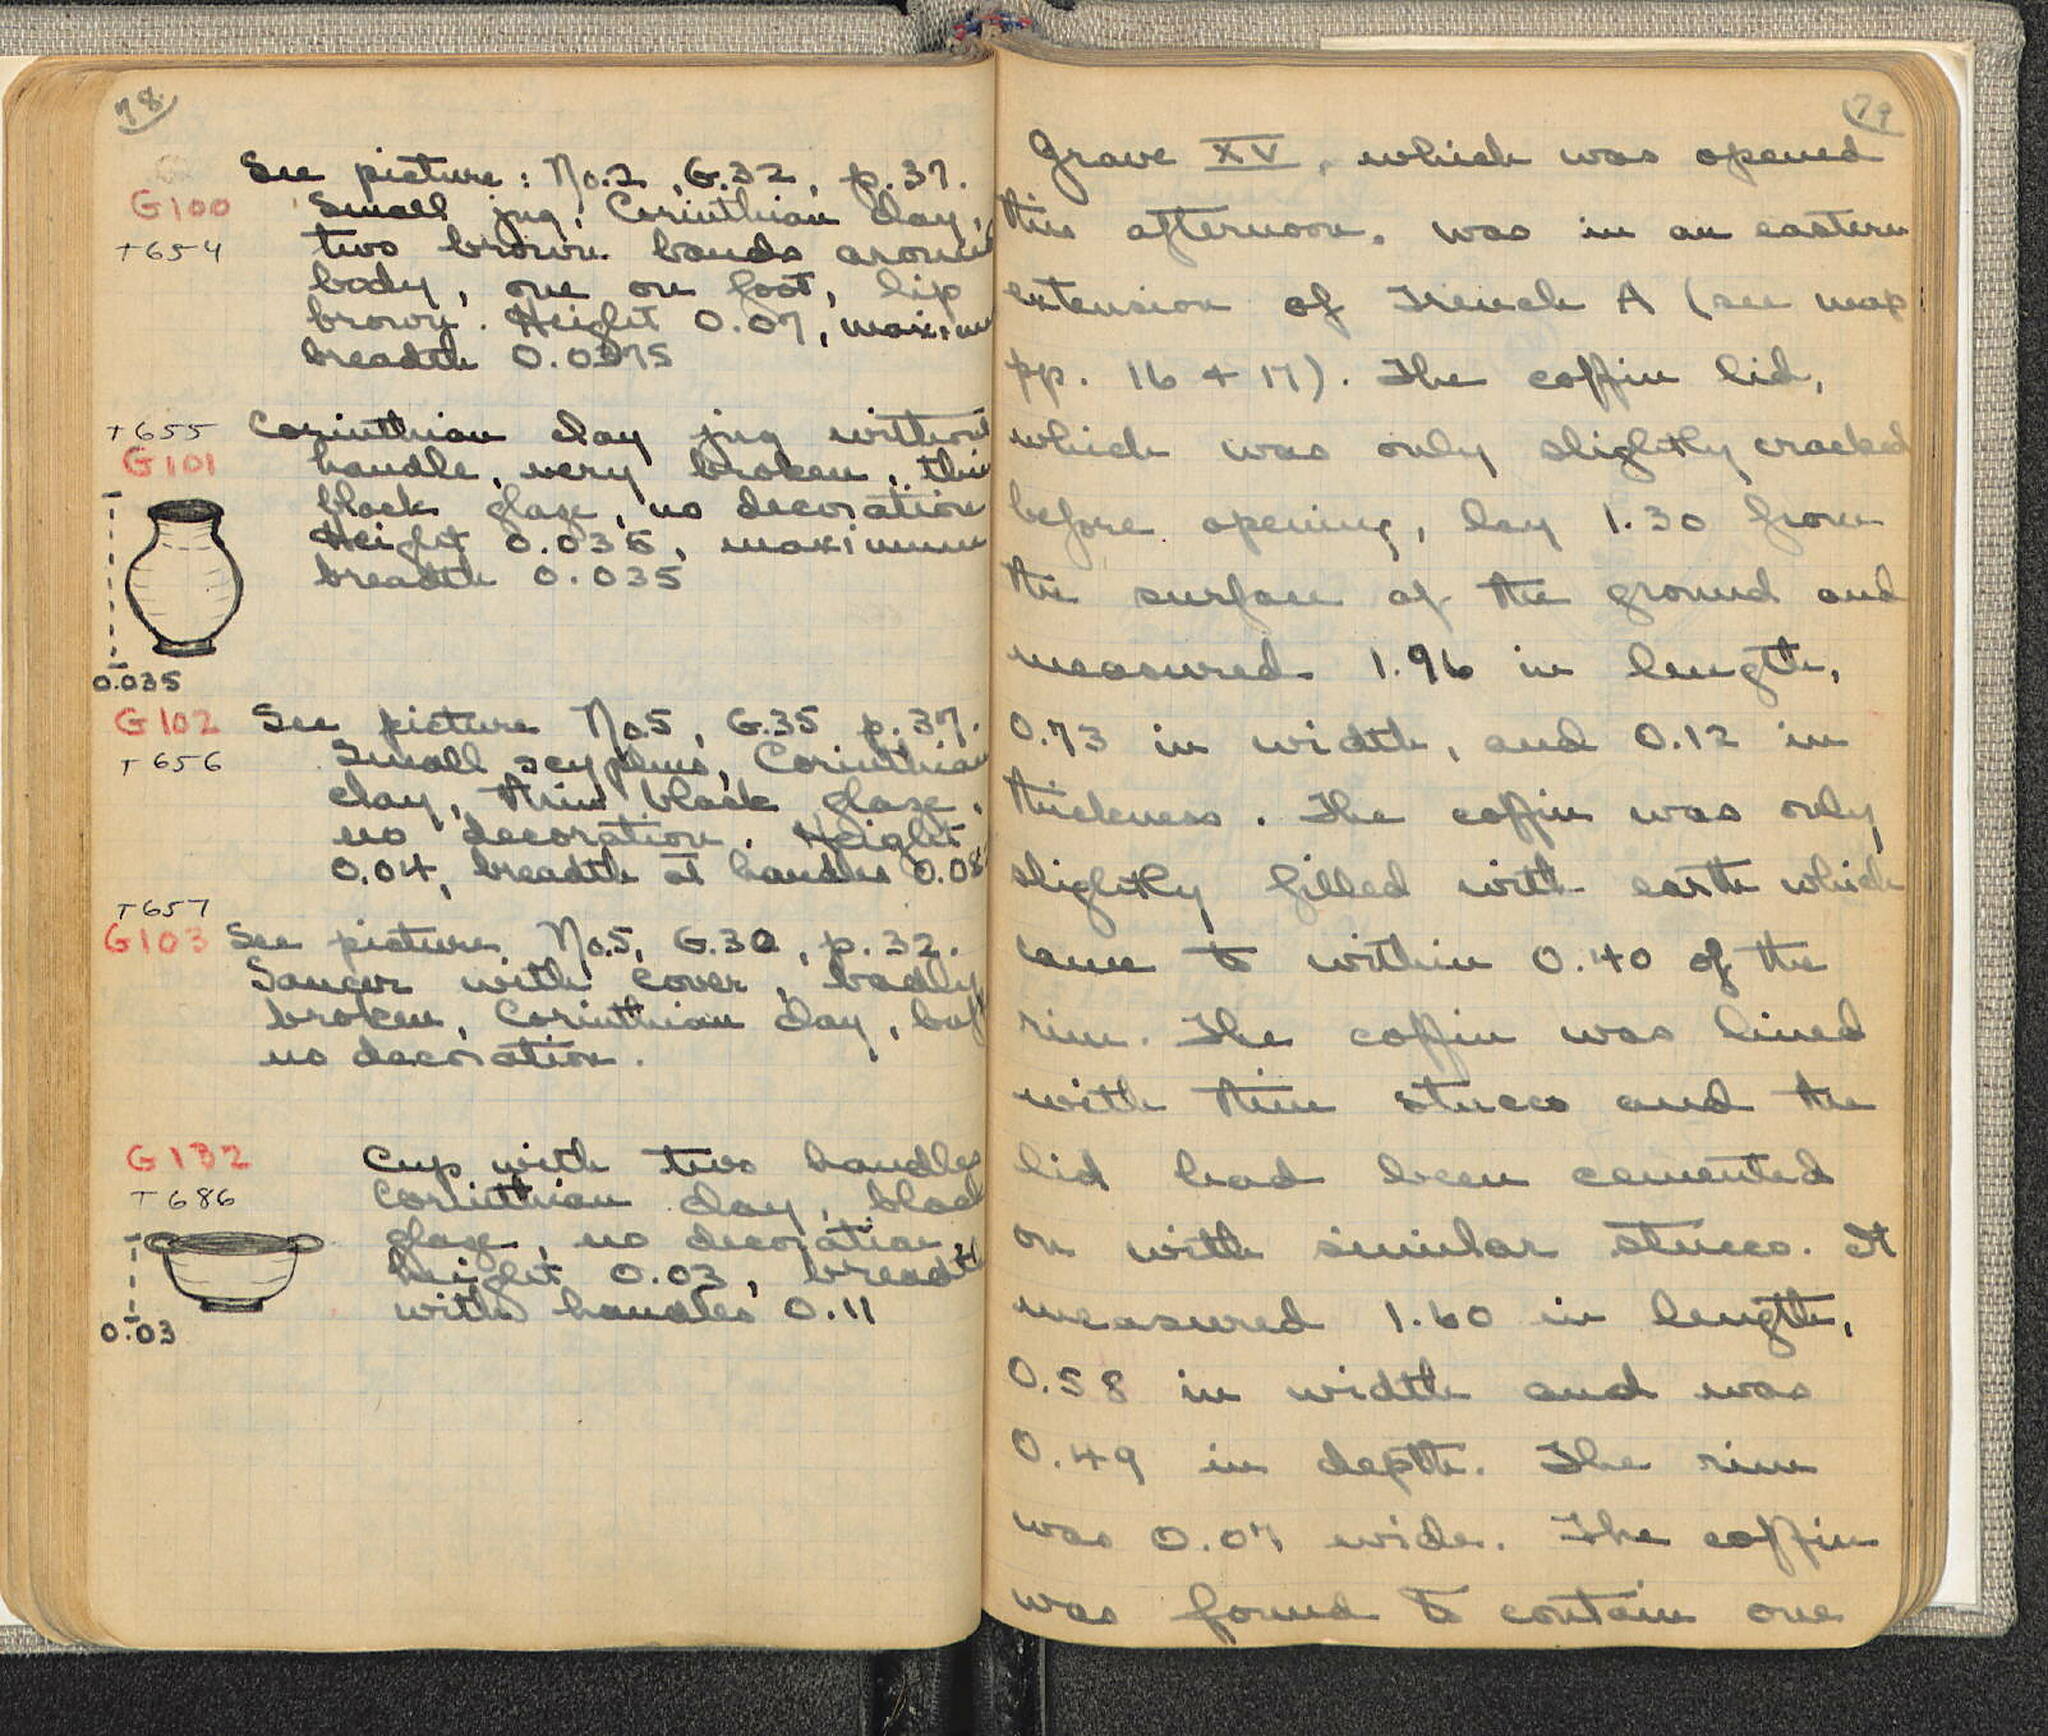 78.
See picture: No.2, G.32, p.37.
G100
Small jug, Corinthian clay,
T654
two brown bands around
body, one on foot, lip
brown. Height 0.07, maximum
breadth 0.0375
T655
Corinthian clay jug without
G101
handle, very broken, thin
black glaze, no decoration
Height 0.035, maximum
breadth 0.035
0.035
G102
See picture No5, G.35 p.37.
T656
Small scyphus, Corinthian
clay, thin black glaze,
no decoration. Height
0.04, breadth at handles 0.08
T657
G103
See picture No.5, G.30, p.32.
Saucer with cover, badly
broken, Corinthian clay, buff
no decoration.
G132
Cup with two handles
T686
Corinthian clay, black
glaze, no decoration,
height 0.03, breadth
with handles 0.11
0.03
79
Grave XV, which was opened
this afternoon, was in an eastern
extension of Trench A (see map
pp. 16 + 17). The coffin lid,
which was only slightly cracked
before opening, lay 1.30 from
the surface of the ground and
measured 1.96 in length,
0.73 in width, and 0.12 in
thickness. The coffin was only
slightly filled with earth which
came to within 0.40 of the
rim. The coffin was lined
with thin stucco and the
lid had been cemented
on with similar stucco. It
measured 1.60 in length,
0.58 in width and was
0.49 in depth. The rim
was 0.07 wide. The coffin
was found to contain one